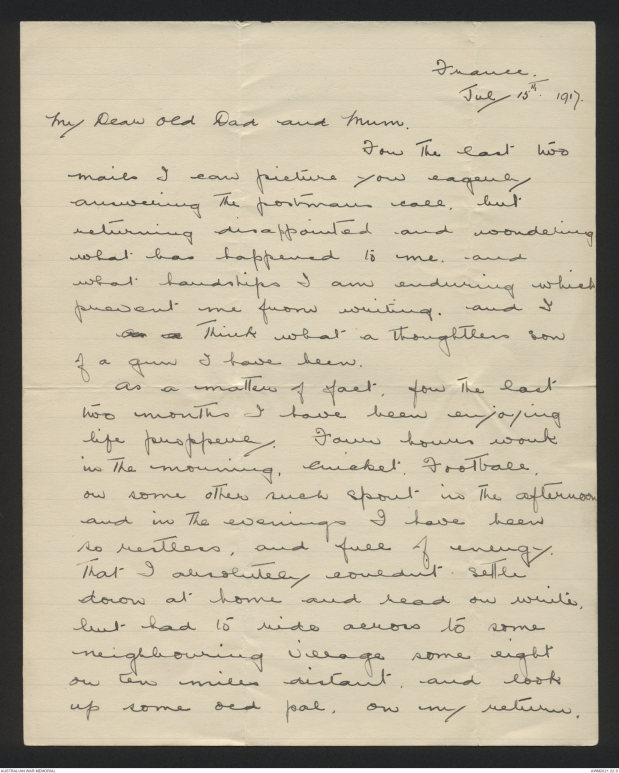 France.
July 15th. 1917.
My Dear Old Dad and Mum.
For the last two
mails I can picture you eagerly
answering the postmans call, but
returning disappointed and wondering
what has happened to me, and
what hardships I am enduring which
prevent me from writing. and I
Think what a thoughtless son
of a gun I have been.
As a matter of fact, for the last
two months I have been enjoying
life propperly. Four hours work
in the morning, Cricket, Football,
or some other such sport in the afternoon
and in the evenings I have been
so restless, and full of energy,
that I absolutely couldnt settle
down at home and read or write,
but had to ride across to some
neighbouring village some eight
or ten miles distant, and look
up some old pal, on my return,
AUSTRALIAN WAR MEMORIAL